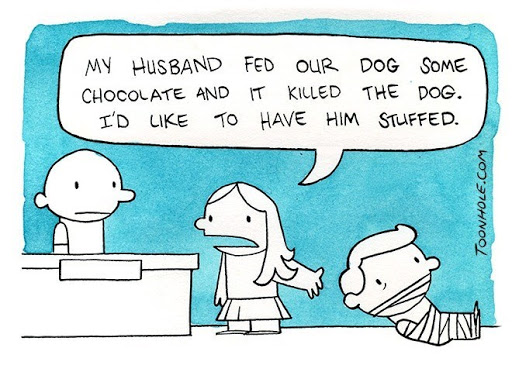 MY HUSBAND FED OUR DOG SOME
CHOCOLATE AND IT KILLED THE DOG.
I'D LIKE TO HAVE HIM STUFFED.
TOONHOLE.COM